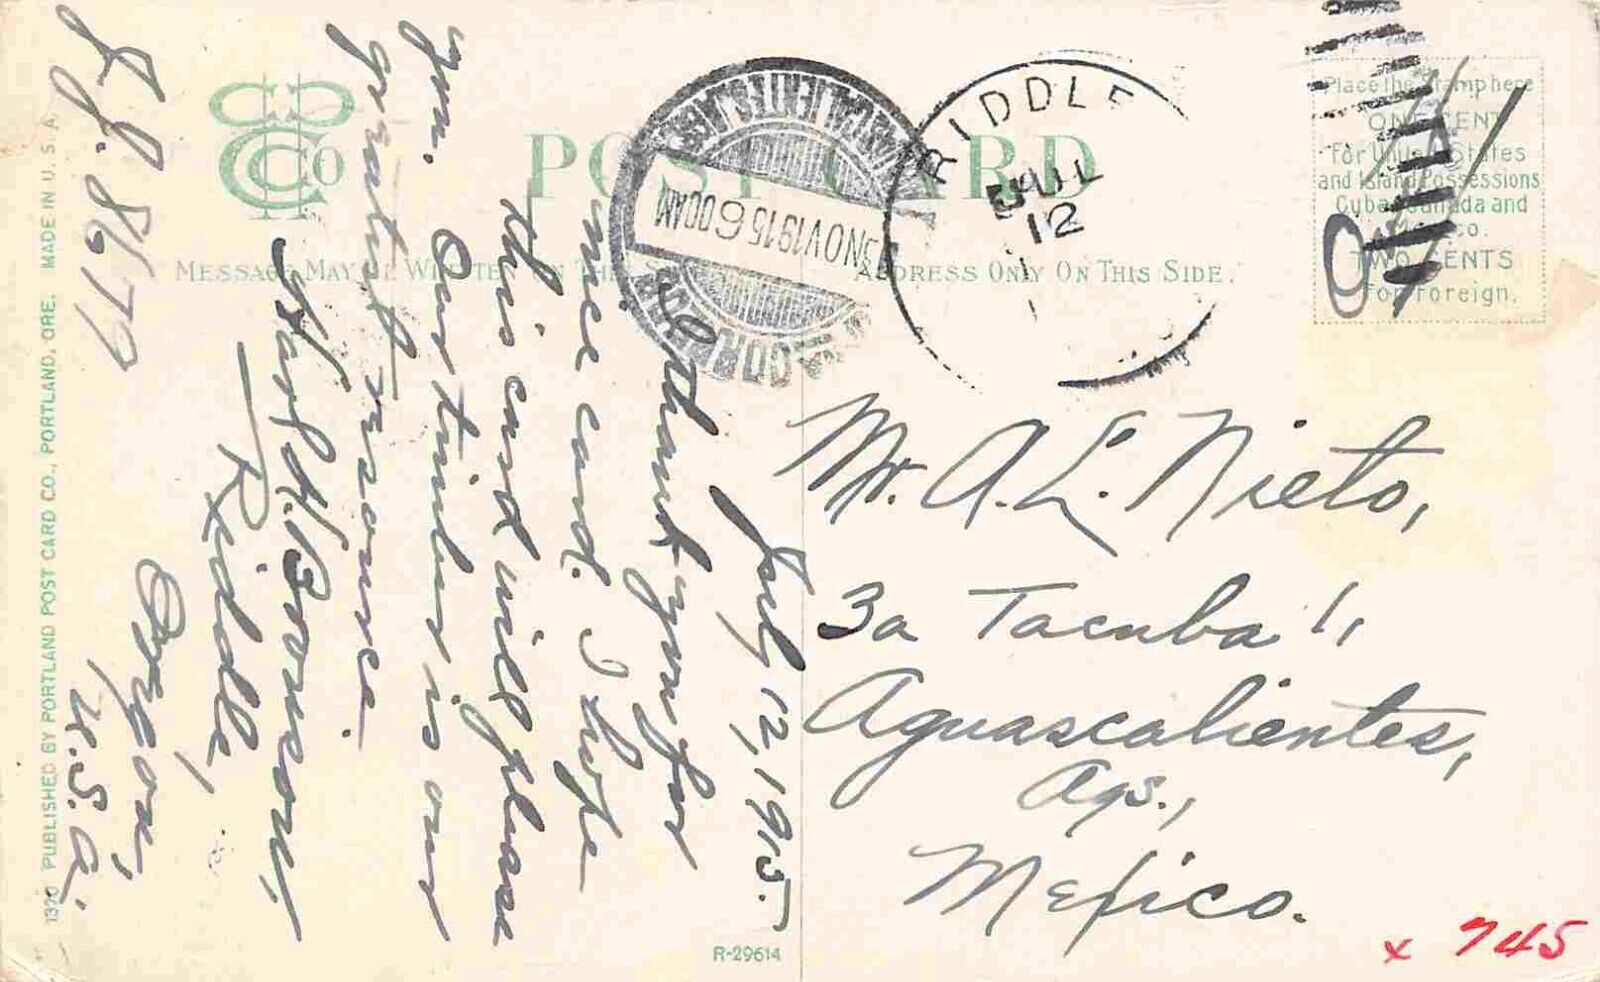 POST CARD
CCCo
Place the Stamp here
ONE CENT
for United States
and Island Possessions
Cuba Canada and
Mexico.
TWO CENTS
for Foreign.
MESSAGE MAY BE WRITTEN ON THIS SIDE
ADDRESS ONLY ON THIS SIDE.
RIDDLE
JUL
12
3 NOV 1915 6 00 AM
AGUASCALIENTES
July 12, 1915.
I thank you for
nice card. I hope
this card will please
you. Our timber is our
greatest resource.
Riddle,
Oregon,
U.S.A.
L.J. 8679
Mr. A. E. Nieto,
3a Tacuba 1,
Aguascalientes,
Ags.,
Mexico.
x 745
R-29614
1370 PUBLISHED BY PORTLAND POST CARD CO., PORTLAND, ORE. MADE IN U. S. A.